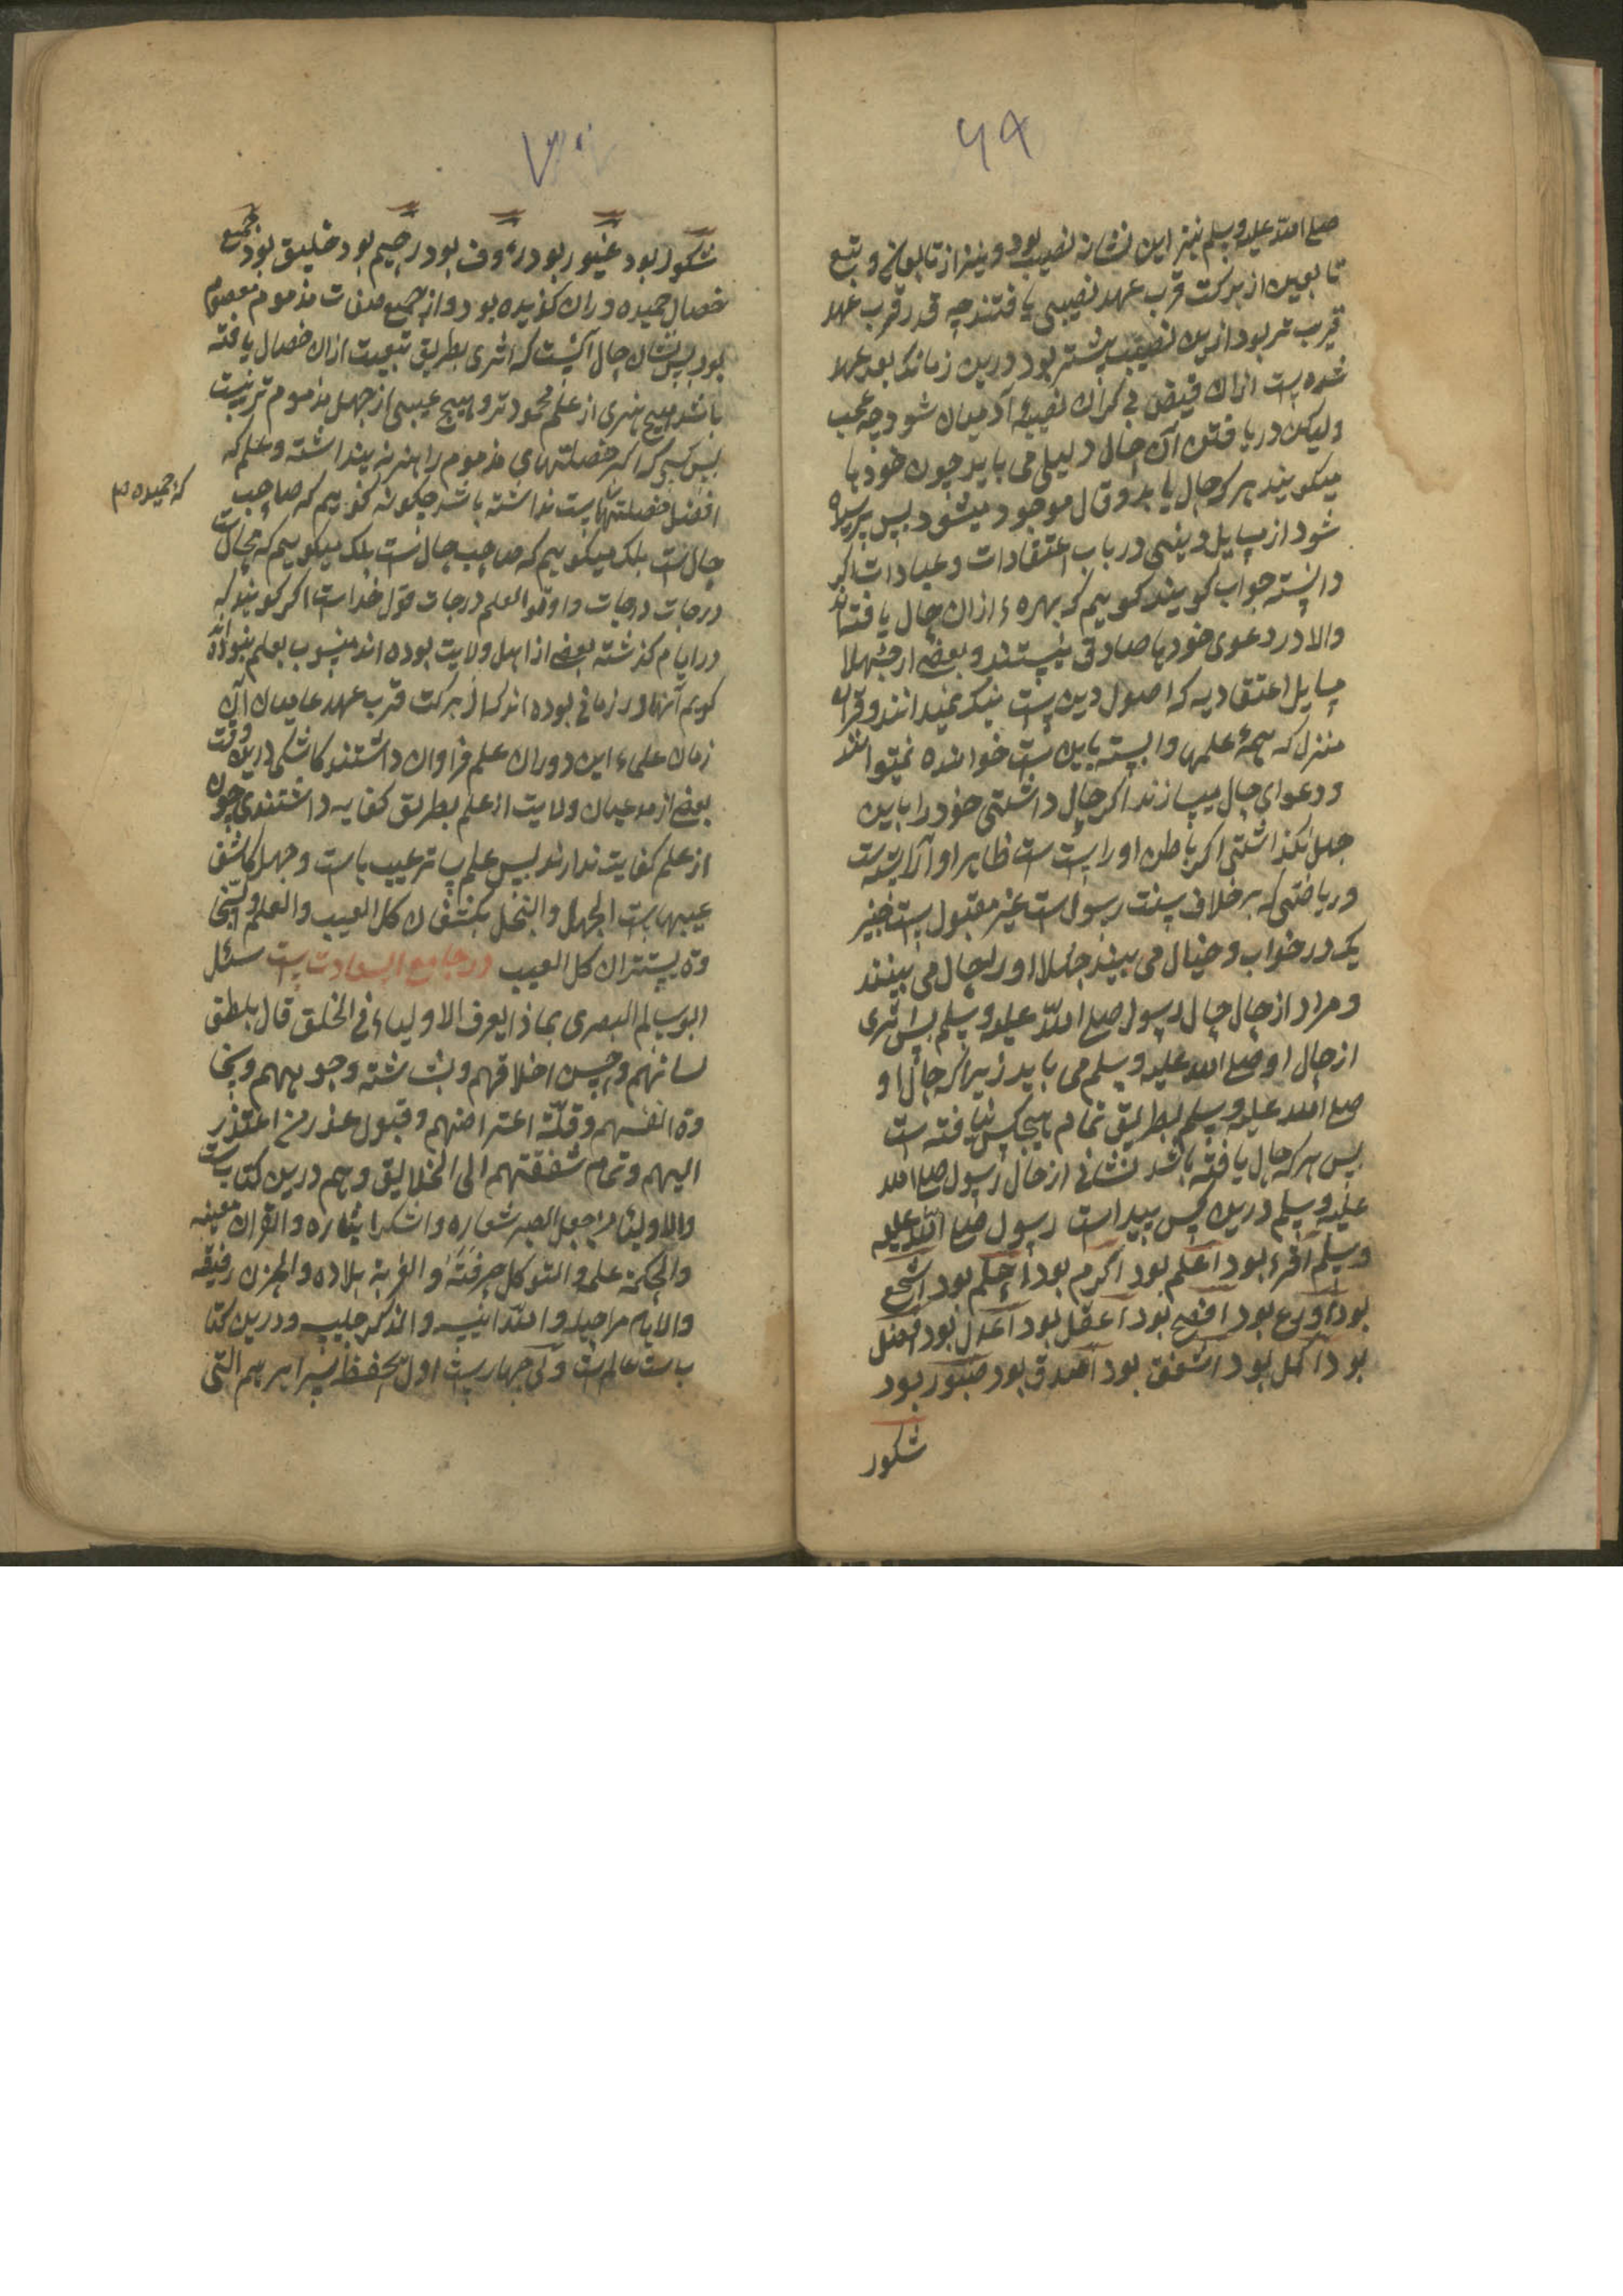 ۶۹
صلی الله علیه وسلم نیز این نشانه نصیب بود و نیز از تابعان و تبع
تابعین از برکت قرب عهد نصیبی یافتند چه قدر قرب عهد
قریب تر بود ازین نصیب بیشتر بود درین زمانه که بعد عهد
شده است ازان فیض نصیبهٔ آدمیان شود چه عجب
ولیکن دریافتن آن حال دلیلی می باید چون خودها
میکویند هر که حال یابد و قال موجود میشود پس پرسیده
شود از مسایل دینی در باب اعتقادات و عبادات اکر
دانسته جواب کویند کوییم که بهرهٔ ازان حال یافته اند
والا در دعوی خودها صادق نیستند و بعضی از جهلا
مسایل اعتقادیه که اصول دین است نیک نمیدانند و قرآن
منزل که همهٔ علمها وابسته باین است خوانده نمیتوانند
و دعوای حال میسازند اکر حال داشتی خود را باین
جهل نکذاشتی اکر باطن او راست است ظاهر او آراسته است
و ریاضتی که برخلاف سنت رسول است غیر مقبول است خیر
یک در خواب و خیال می بیند جهلا او را بحال می بینند
و مراد از حال حال رسول صلی الله علیه وسلم پس اثری
از حال او صلی الله علیه وسلم می باید زیرا که حال او
صلی الله علیه وسلم بطریق تمام هیچکس نیافته است
پس هر که حال یافته باشد نشانی از حال رسول صلی الله
علیه وسلم درین کس پیداست رسول صلی الله علیه
وسلم اقرء بود اعلم بود اکرم بود احکم بود اشجع
بود اورع بود افصح بود اعقل بود اعدل بود افضل
بود اکمل بود اشفق بود اصدق بود صبور بود
شکور
۷۰
شکور بود غیور بود رءوف بود رحیم بود خلیق بود بجمیع
خصال حمیده وران کزیده بود و از جمیع صفات مذموم معصوم
بود پس نشان حال آنست که اثری بطریق تبعیت ازان خصال یافته
باشد هیچ هنری از علم محمودتر و هیچ عیبی از جهل مذموم تر نیست
پس کسی که اکر خصلتهای مذموم را هنر نه پنداشته و علم که
افضل خصلتهاست نداشته باشد چکونه کوییم که صاحب
که حمیده ۱۲
حال است بلک میکوییم که صاحب جهال است بلک میکوییم که بحال است
درجات درجات و اوتوا العلم درجات قول خداست اکر کویند که
در ایام کذشته بعضی از اهل ولایت بوده اند منسوب بعلم نبوده اند
کویم آنها در زمانی بوده اند که از برکت قرب عهد عامیان آن
زمان علماء این دوران علم فراوان داشتند کاشکی درین وقت
بعضی از مدعیان ولایت از علم بطریق کفایه داشتندی چون
از علم کفایت ندارند پس علم ساتر عیبهاست و جهل کاشف
عیبهاست الجهل والبخل یکشفان کل العیب والعلم والسخا
وة یستتران کل العیب در جامع السعادت است سئل
ابو سالم البصری بماذا یعرف الاولیاء فی الخلق قال بلطف
لسانهم و حسن اخلاقهم و بشاشته وجوههم و سخا
وة انفسهم و قلّة اعتراضهم و قبول عذر من اعتذر
الیهم و تمام شفقتهم الی الخلایق و هم درین کتاب است
والاولیاء من جعل الصبر شعاره والشکر دثاره والقران معینه
والحکمة علمه والتوکل حرفته والغربة بلاده والحزن رفیقه
والایام مراحیله والله انیسه والذکر جلیسه و درین کتا
ب است عالم است و آن چهار است اول حفظ سیرا بریهم التی